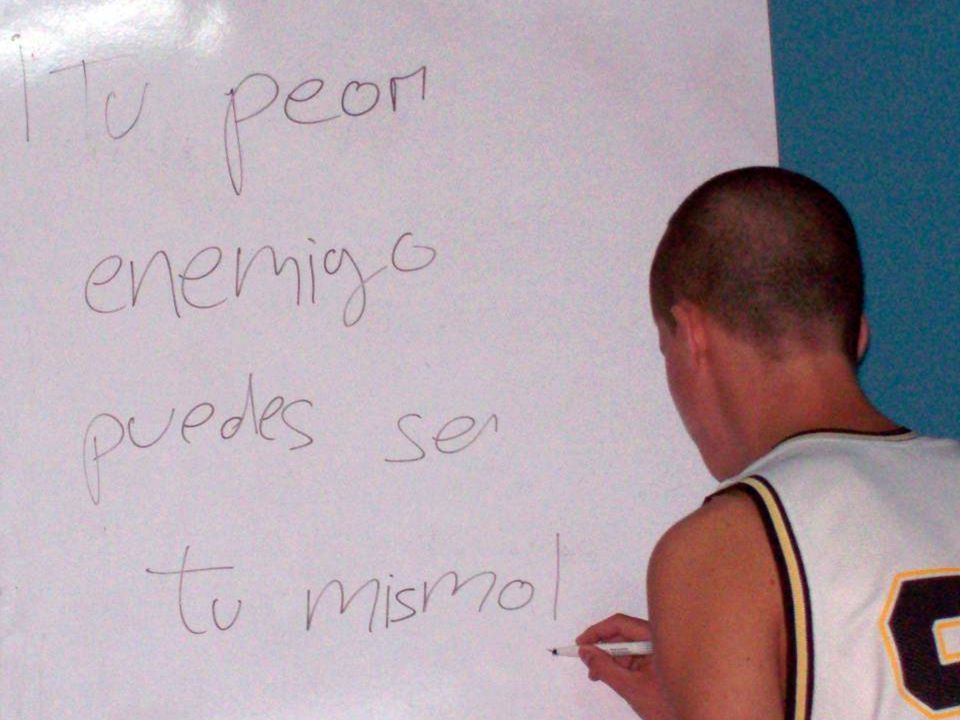 ¡Tu peor
enemigo
puedes ser
tu mismo!